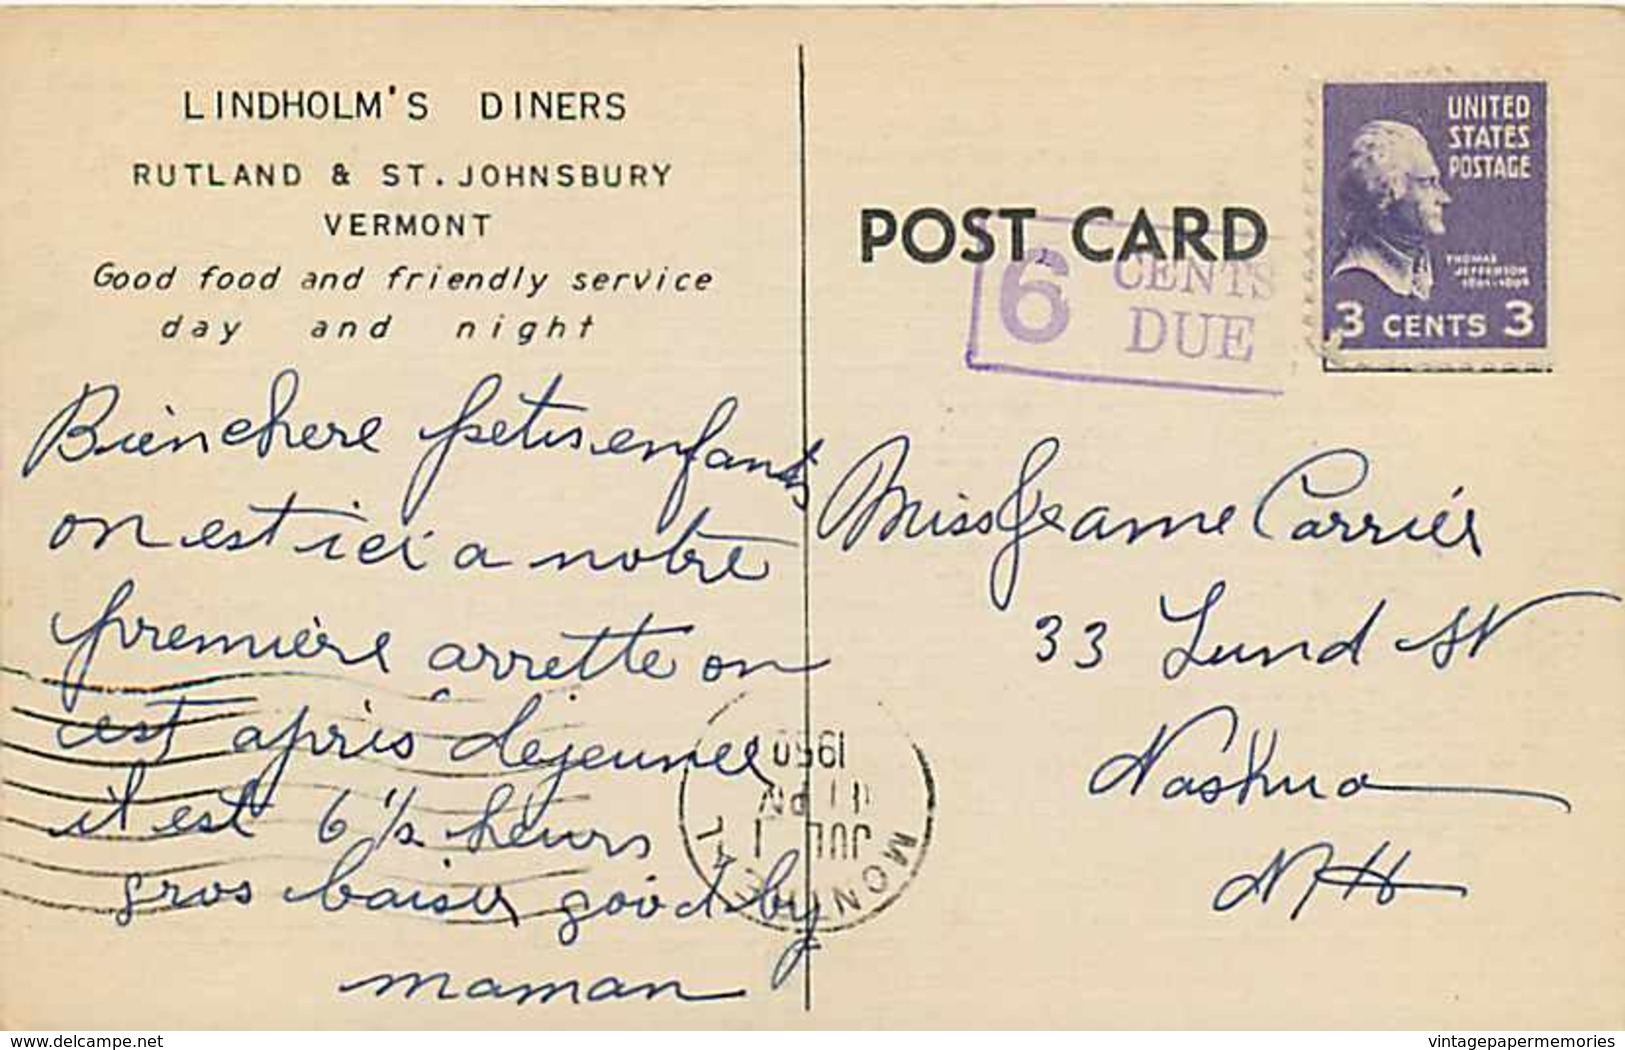 LINDHOLM'S DINERS
RUTLAND & ST. JOHNSBURY
VERMONT
Good food and friendly service
day and night
Bien chere petis enfants
on est ici a notre
première arrette on
est après dejeuner
il est 6 1/2 heurs
gros baiser good by
maman
POST CARD
6 CENTS
DUE
UNITED
STATES
POSTAGE
THOMAS
JEFFERSON
1801-1809
3 CENTS 3
Miss Jeanne Carrier
33 Lund St
Nashua
N H
MONTREAL
JUL 1
11 PM
1950
delcampe.net
vintagepapermemories